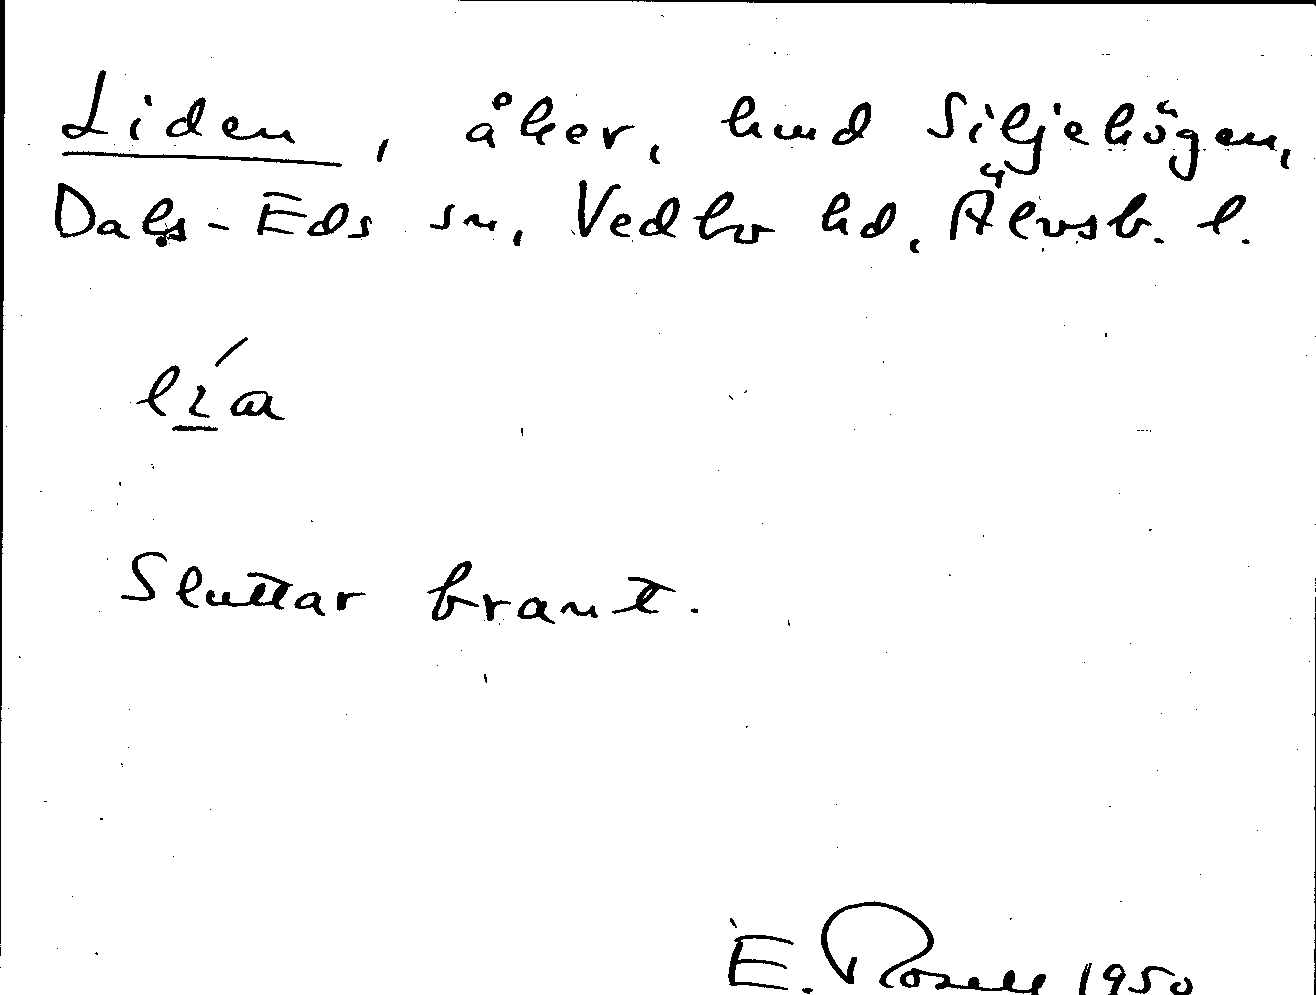 Liden, åker, hmd Siljehögen,
Dals-Eds sn, Vedbo hd, Älvsb. l.
Sluttar brant.
E. Rosell 1950